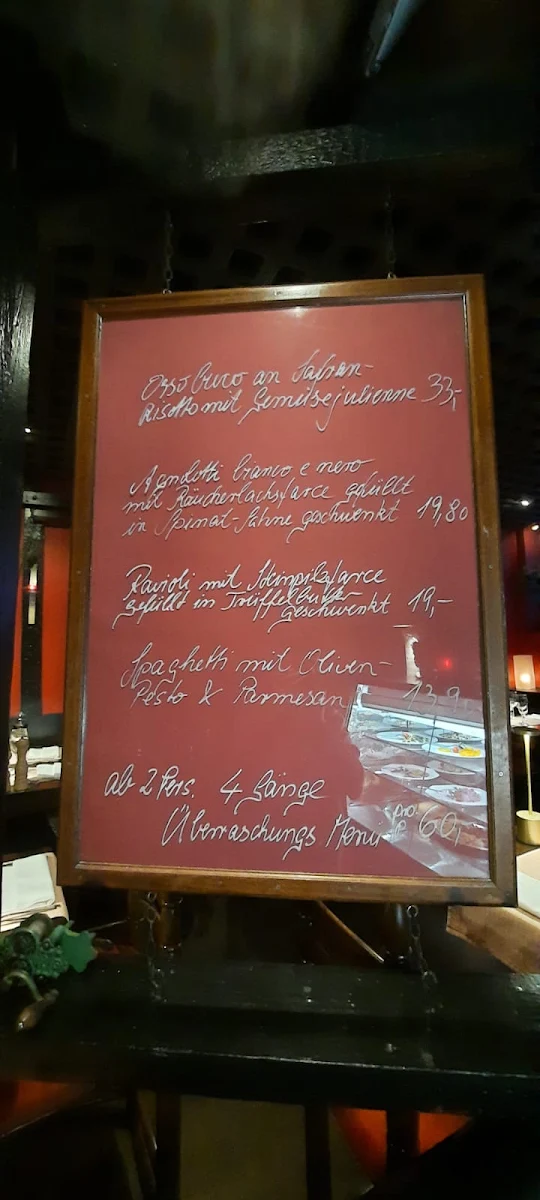 Osso buco an Safran-
Risotto mit Gemüsejulienne 33,-
Agnolotti bianco e nero
mit Räucherlachsfarce gefüllt
in Spinat-Sahne geschwenkt 19,80
Ravioli mit Steinpilzfarce
gefüllt in Trüffelbutter
geschwenkt 19,-
Spaghetti mit Oliven-
Pesto & Parmesan
ab 2 Pers. 4 Gänge
Überraschungs Menü pro P. 60,-